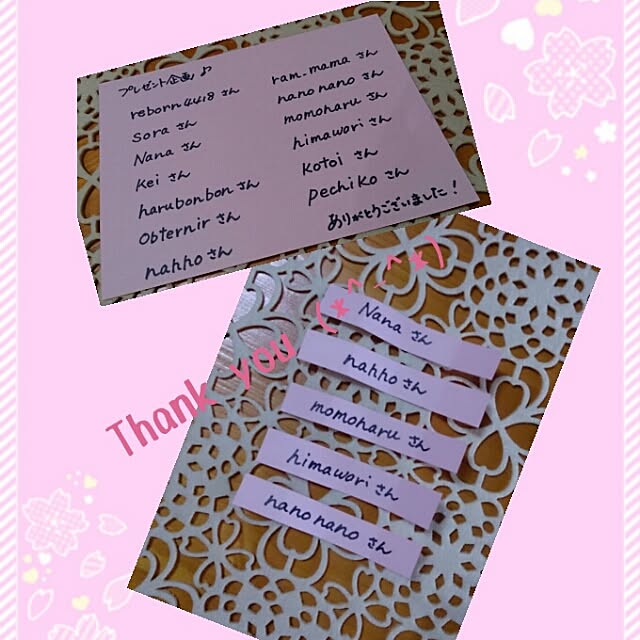 プレゼント企画♪
reborn4418 さん
Sora さん
Nana さん
kei さん
harubonbon さん
Obternir さん
nahho さん
ram_mama さん
nanonano さん
momoharu さん
himawori さん
kotoi さん
pechiko さん
ありがとうございました!
Thank you (*^_^*)
Nana さん
nahho さん
momoharu さん
himawori さん
nanonano さん